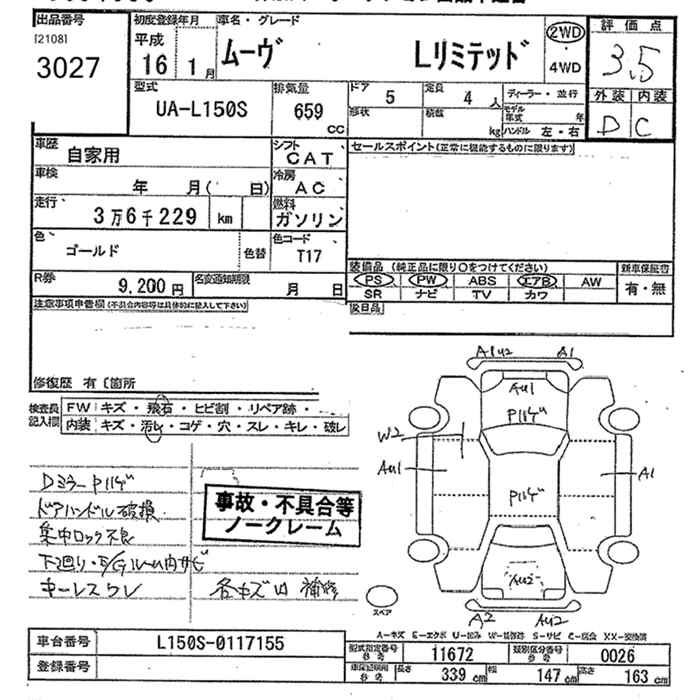 出品番号 初度登録年月 車名・グレード 評価点
[2108] 平成 2WD
3027 16 1月 ムーヴ Lリミテッド ・4WD 3.5
型式 排気量 ドア 5 定員 4人 ディーラー・並行 外装 内装
UA-L150S 659 CC 形状 積載 kg モデル年式 年 D C
ハンドル 左・右
車歴 自家用 シフト CAT セールスポイント(正常に機能するものに限ります)
車検 年 月( 日) 冷房 AC
走行 3万6千229 km 燃料 ガソリン
色 ゴールド 色替 色コード T17
装備品 (純正品に限り○をつけてください) 新車保証書
R券 9,200円 名変通知期限 月 日 PS PW ABS エアB AW 有・無
SR ナビ TV カワ
注意事項申告欄(不具合内容等は具体的に記入して下さい) 後日品
修復歴 有 〔箇所
検査員記入欄 FW キズ・飛石・ヒビ割・リペア跡・
内装 キズ・汚れ・コゲ・穴・スレ・キレ・破レ
A1U2 A1
AU1
P11ゲ
W2
AU1 A1
P11ゲ
AU2
A2 AU2
Dミラー P11ゲ
ドアハンドル破損
集中ロック不良
下廻り・E/Gルーム内サビ
キーレスワレ
事故・不具合等
ノークレーム
各キズ 補修
スペア
A-キズ E-エクボ U-凹み W-補修跡 S-サビ C-腐食 XX-交換済
車台番号 L150S-0117155 型式指定番号 参考 11672 類別区分番号 参考 0026
登録番号 参考 長さ 339cm 幅 147cm 高さ 163cm